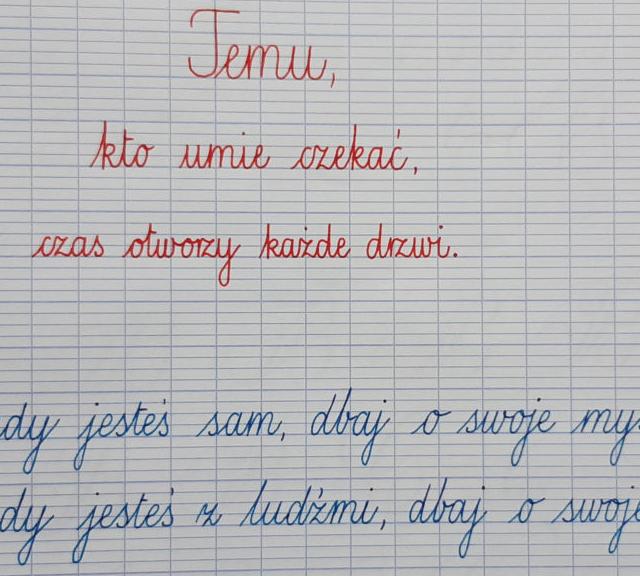 Temu,
kto umie czekać,
czas otworzy każde drzwi.
dy jesteś sam, dbaj o swoje myś
dy jesteś z ludźmi, dbaj o swoje